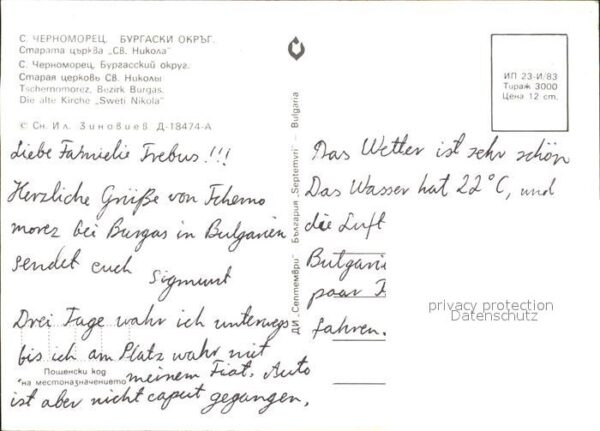 С. ЧЕРНОМОРЕЦ. БУРГАСКИ ОКРЪГ.
Старата църква „Св. Никола"
С. Черноморец. Бургасский округ.
Старая церковь Св. Николы
Tschernomorez, Bezirk Burgas.
Die alte Kirche „Sweti Nikola"
© Сн. Ил. Зиновиев Д-18474-А
Liebe Famielie Trebus!!!
Herzliche Grüße von Tcherno
morez bei Burgas in Bulgarien
sendet euch
Sigmunt
Drei Tage wahr ich unterwegs
bis ich am Platz wahr mit
meinem Fiat. Auto
ist aber nicht caput gegangen.
Пощенски код
на местоназначението
ДИ „Септември" България „Septemvri" — Bulgaria
ИП 23-И/83
Тираж 3000
Цена 12 ст.
Das Wetter ist sehr schön
Das Wasser hat 22°C, und
die Luft
Bulgarie
paar
fahren.
privacy protection
Datenschutz